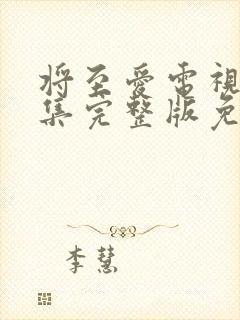 将至愛電視
集完整版免
李慧